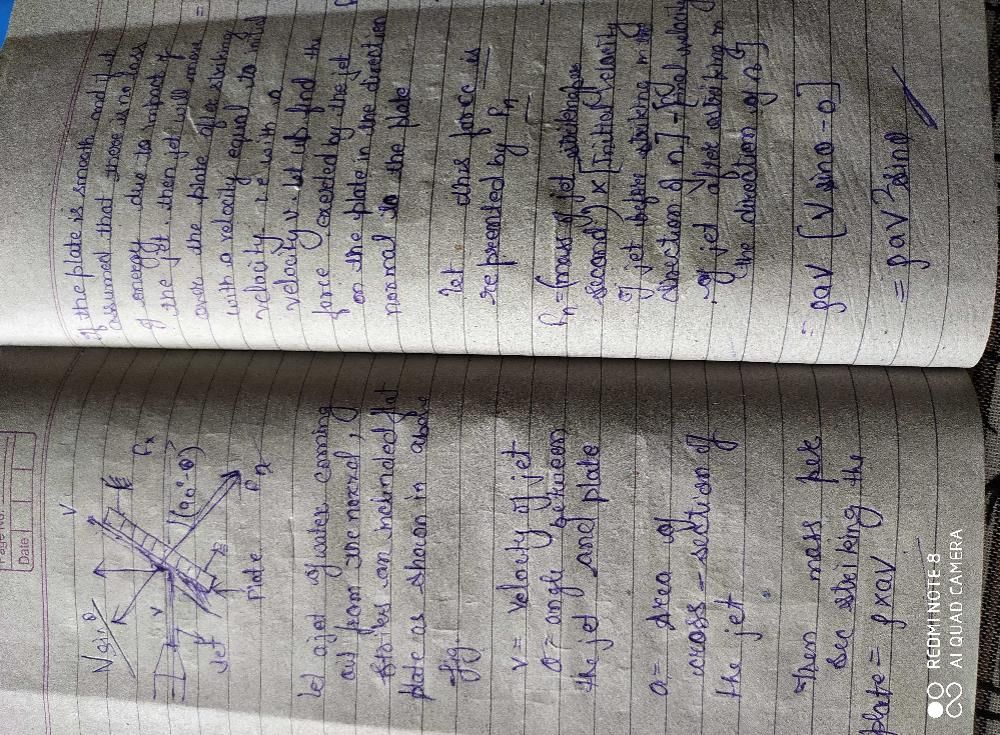 Page No.
Date
V
V sin θ
Fx
V
(90°-θ)
Jet
Plate
let a jet of water coming
out from the normal,
strikes an inclined flat
plate as shown in above
fig.
V = velocity of jet
θ = angle between
the jet and plate
a = Area of
cross-section of
the jet
Then mass per
sec striking the
plate = ρxav
If the plate is smooth and if it
assumed that there is no loss
of energy due to impact of
the jet, then jet will move
over the plate after striking
with a velocity equal to
velocity i.e with a
velocity v. let us find the
force exerted by the jet
on the plate in the direction
normal to the plate
let this force is
represented by Fn
Fn = (mass of jet striking per
second) x [Initial velocity
of jet before striking in
direction of n] - [final velocity
of jet after striking in
the direction of n]
= ρav [v sinθ - 0]
= ρav² sinθ
REDMI NOTE 8
AI QUAD CAMERA